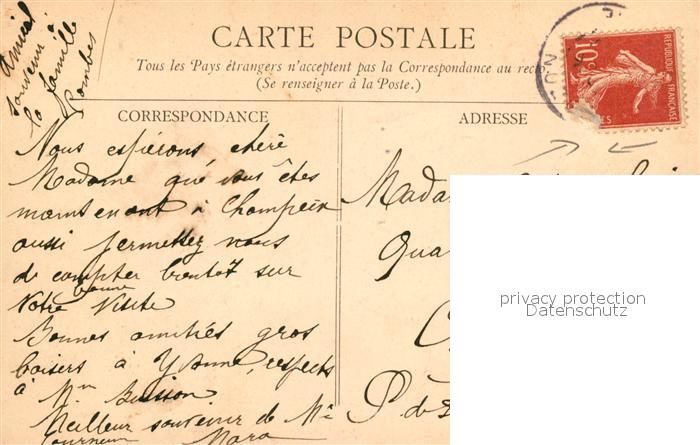 Amical
souvenir à
la famille
Rombes
CARTE POSTALE
Tous les Pays étrangers n'acceptent pas la Correspondance au recto.
(Se renseigner à la Poste.)
CORRESPONDANCE
Nous espérons chère
Madame que vous êtes
maintenant à Champeix
aussi permettez nous
de compter bientôt sur
Votre bonne Visite
Bonnes amitiés gros
baisers à Yvonne, respects
à Mme Buisson
Meilleur souvenir de Me
ADRESSE
Mada
Qua
P. de D
REPUBLIQUE FRANÇAISE
10c
privacy protection
Datenschutz